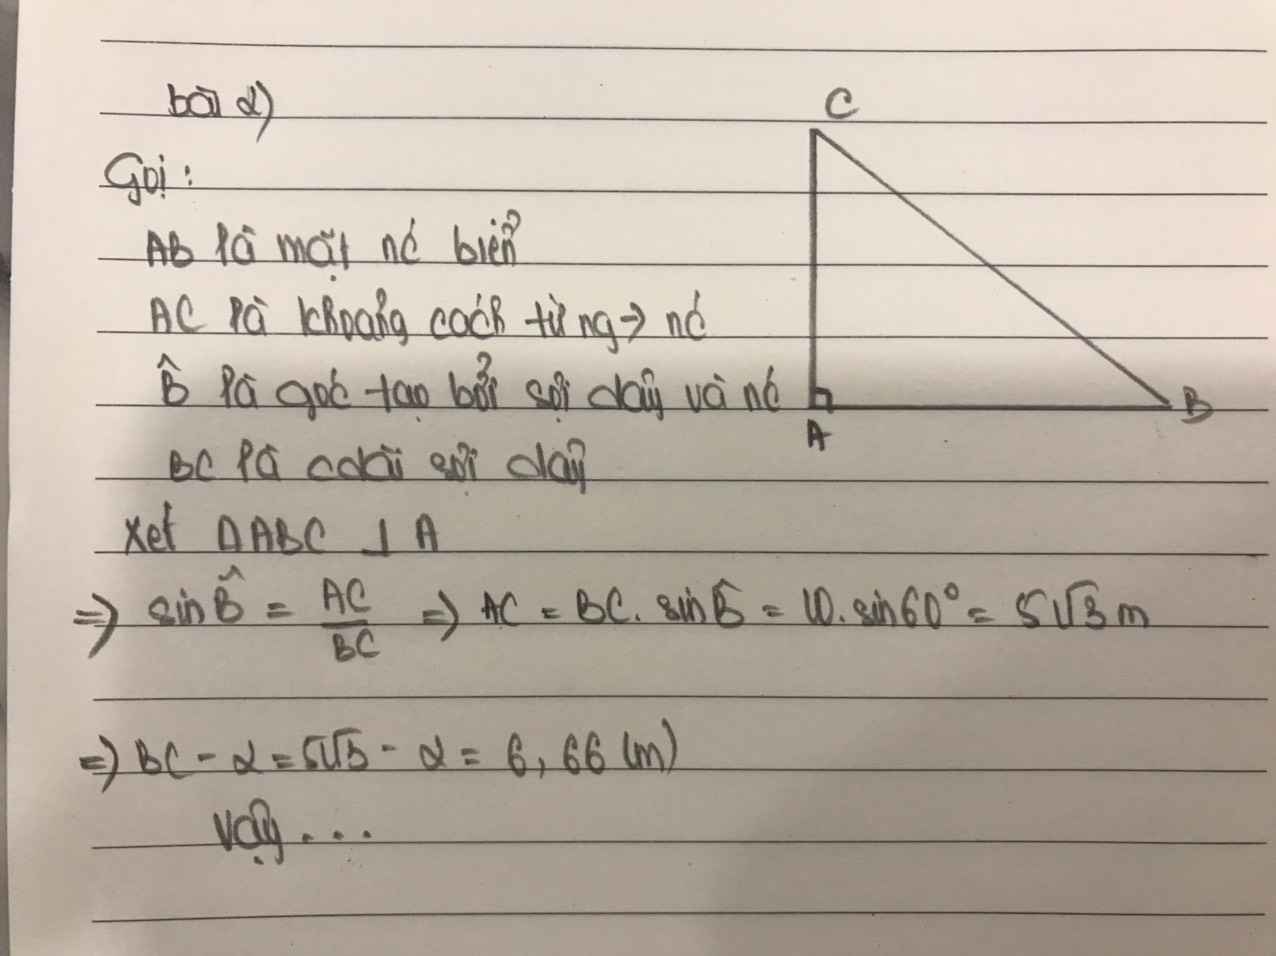 bài 2)
C
Gọi:
AB là mặt nć biển
AC là khoảng cách từ ng → nć
B̂ là góc tạo bởi sợi dây và nć
B
A
BC là cdài sợi dây
Xét ΔABC ⊥ A
=> sin B̂ = AC/BC => AC = BC. sin B̂ = 10. sin 60° = 5√3 m
=> BC - 2 = 5√3 - 2 = 6,66 (m)
Vậy...